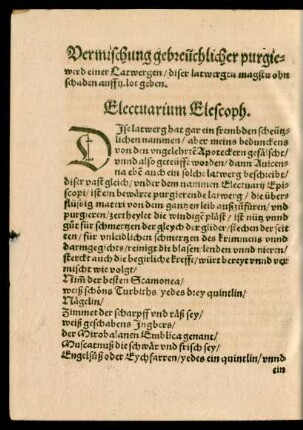 Vermischung gebreüchlicher purgie-
rend einer Latwergen / diser latwergen magstu ohn
schaden auff iij. lot geben.
Electuarium Elescoph.
DIse latwerg hat gar ein frembden scheütz-
lichen nammen / aber meins bedunckens
von den vngelehrtē Apoteckern gefälschet /
vnnd also geteüfft worden / dann Auicen-
na ebē auch ein solche latwerg beschreibt /
diser vast gleich / vnder dem nammen Electuarij Epi-
scopi / ist ein bewärte purgierende latwerg / die über-
flüssig materi von dem gantzen leib außzüfüren / vnd
purgieren / zertheylet die windige pläst / ist nütz vnnd
güt für schmertzen der gleych der glider / stechen der seit
ten / für vnleidlichen schmertzen des krimmens vnnd
darmgegichts / reinigt die blasen / lenden vnnd nieren /
sterckt auch die begirliche krefft / würt bereyt vnnd ver
mischt wie volgt /
Nim̃ der besten Scamonea /
weiß schöns Turbiths yedes drey quintlin /
Nägelin /
Zimmet der scharpff vnd räß sey /
weiß geschabens Jngbers /
der Mirobalanen Emblica genant /
Muscatnuß die schwär vnd frisch sey /
Engelsüß oder Eychfarren / yedes ein quintlin / vnnd
ein